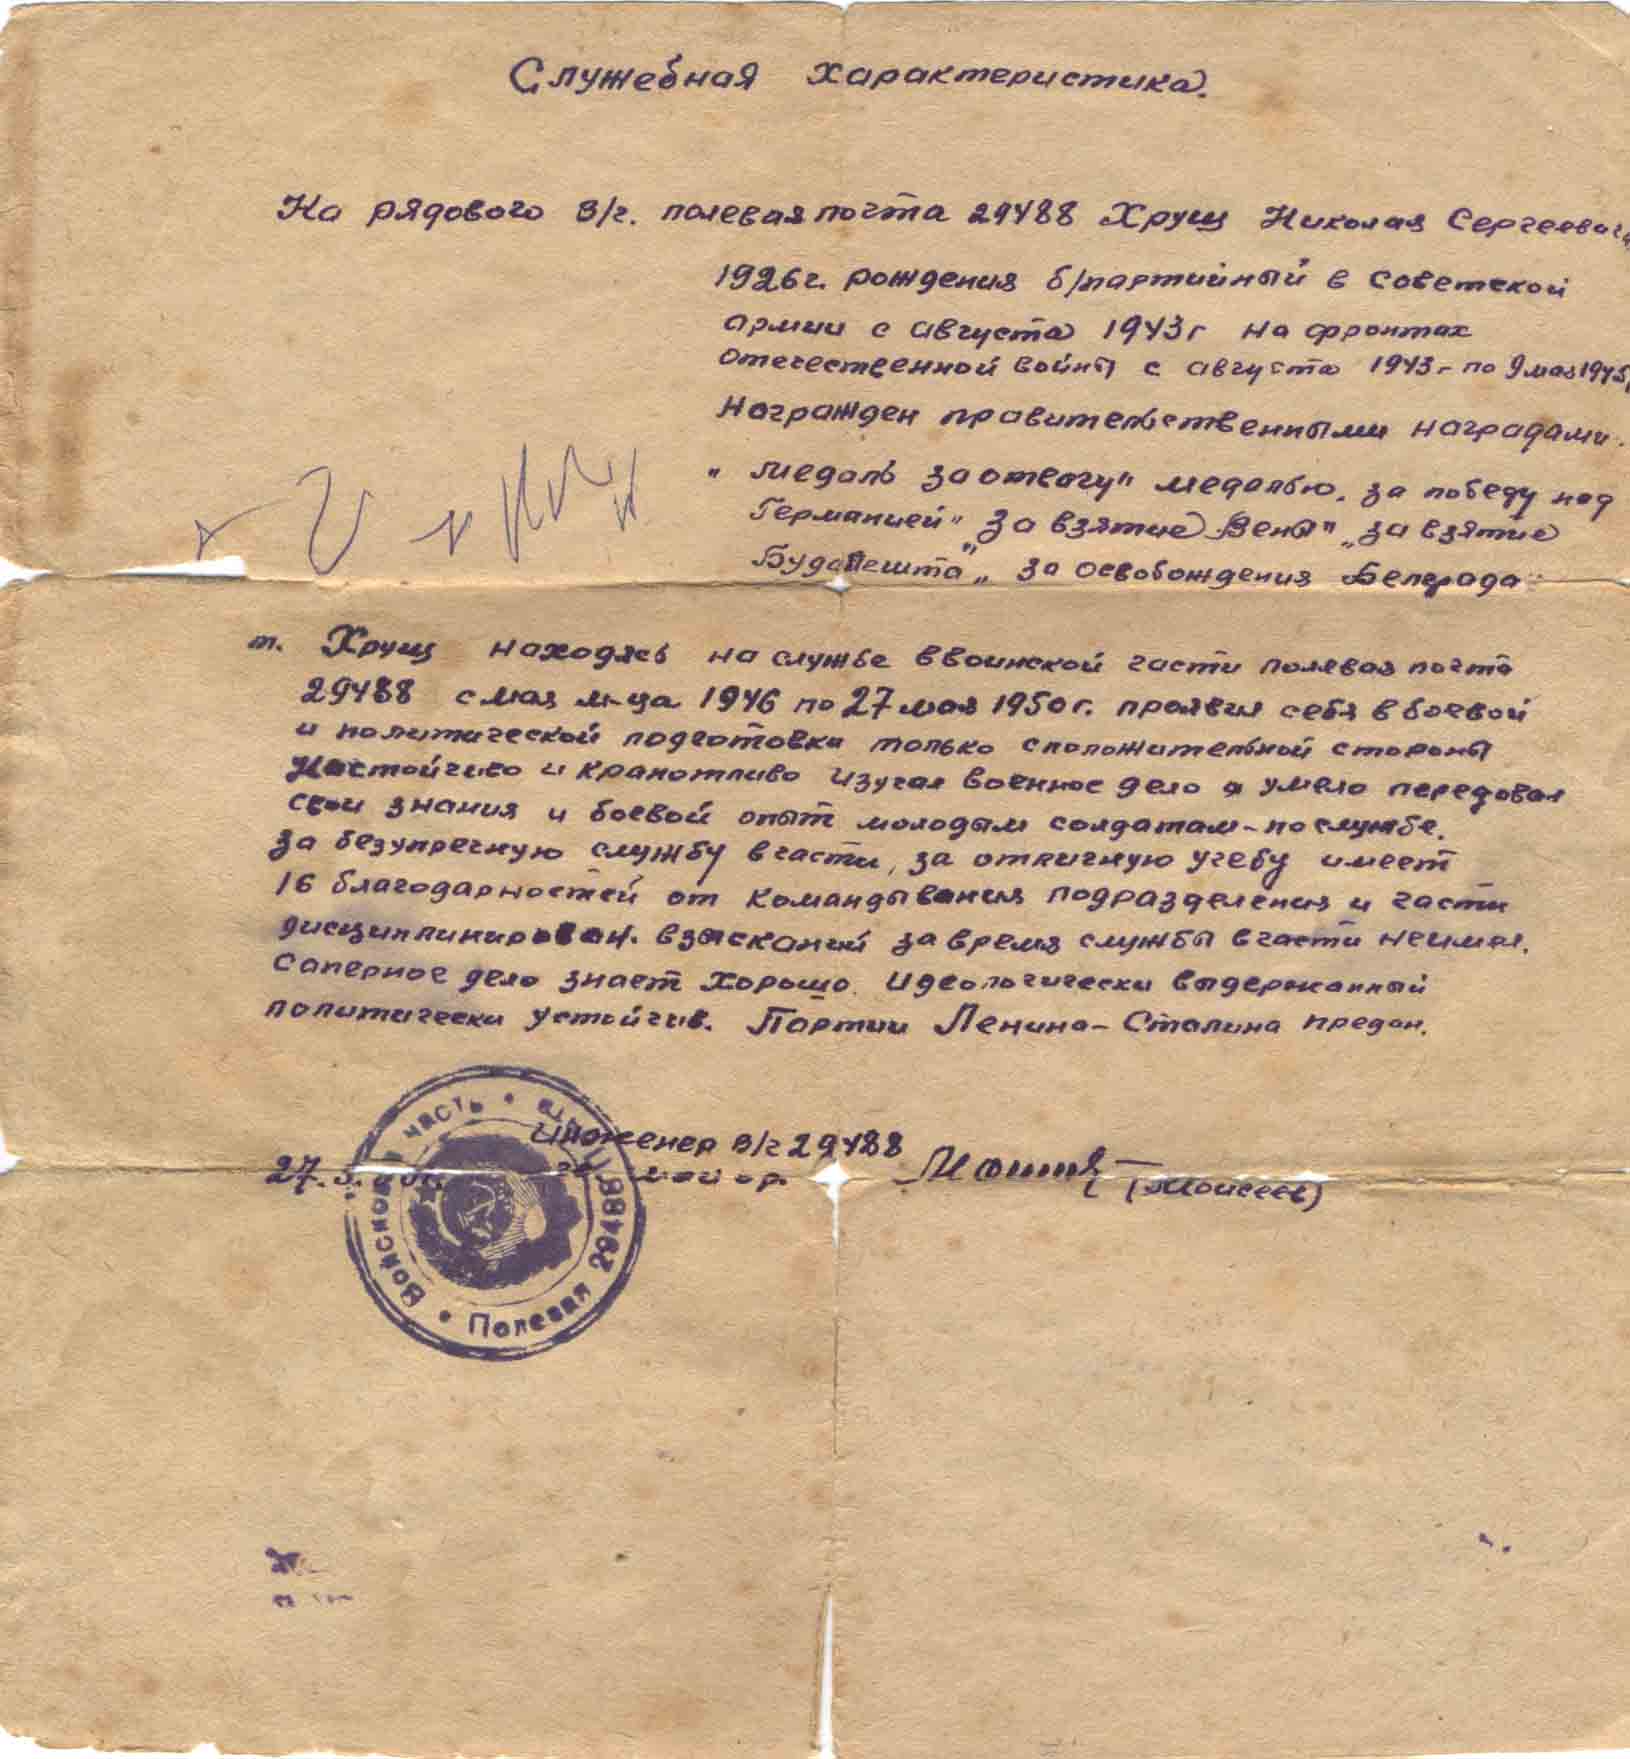 Служебная характеристика.
На рядового в/ч. полевая почта 29488 Хрущ Николая Сергеевича
1926г. рождения б/партийный в Советской
армии с августа 1943г на фронтах
отечественной войны с августа 1943г по 9 мая 1945г
Награжден правительственными наградами.
"медаль за отвагу" медалью, за победу над
Германией" За взятие Вены" „за взятие
Будапешта" „за освобождения Белграда
т. Хрущ находясь на службе в воинской части полевая почта
29488 с мая м-ца 1946 по 27 мая 1950г. проявил себя в боевой
и политической подготовки только с положительной стороны
Настойчиво и крапотливо изучал военное дело и умело передовал
свои знания и боевой опыт молодым солдатам-по службе.
За безупречную службу в части, за отличную учебу имеет
16 благодарностей от командывания подразделения и части
дисциплинирован. взысканий за время службы в части не имел.
Саперное дело знает хорошо. Идеологически выдержанный
политически устойчив. Партии Ленина-Сталина предан.
Инженер в/ч 29488
27.5. майор. (Моисеев)
Войсковая часть • Полевая почта 29488 •